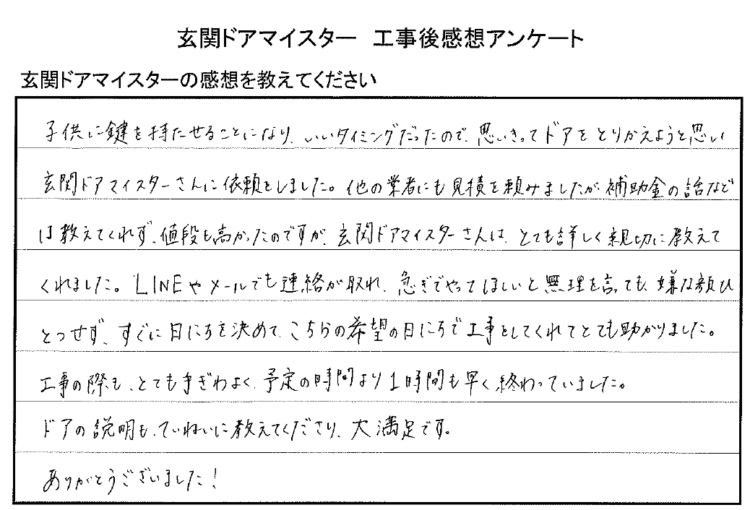 玄関ドアマイスター　工事後感想アンケート
玄関ドアマイスターの感想を教えてください
子供に鍵を持たせることになり、いいタイミングだったので、思いきってドアをとりかえようと思い
玄関ドアマイスターさんに依頼をしました。他の業者にも見積を頼みましたが、補助金の話など
は教えてくれず、値段も高かったのですが、玄関ドアマイスターさんは、とても詳しく親切に教えて
くれました。LINEやメールでも連絡が取れ、急ぎでやってほしいと無理を言っても、嫌な顔ひ
とつせず、すぐに日にちを決めて、こちらの希望の日にちで工事をしてくれてとても助かりました。
工事の際も、とても手ぎわよく、予定の時間より1時間も早く終わっていました。
ドアの説明も、ていねいに教えてくださり、大満足です。
ありがとうございました!